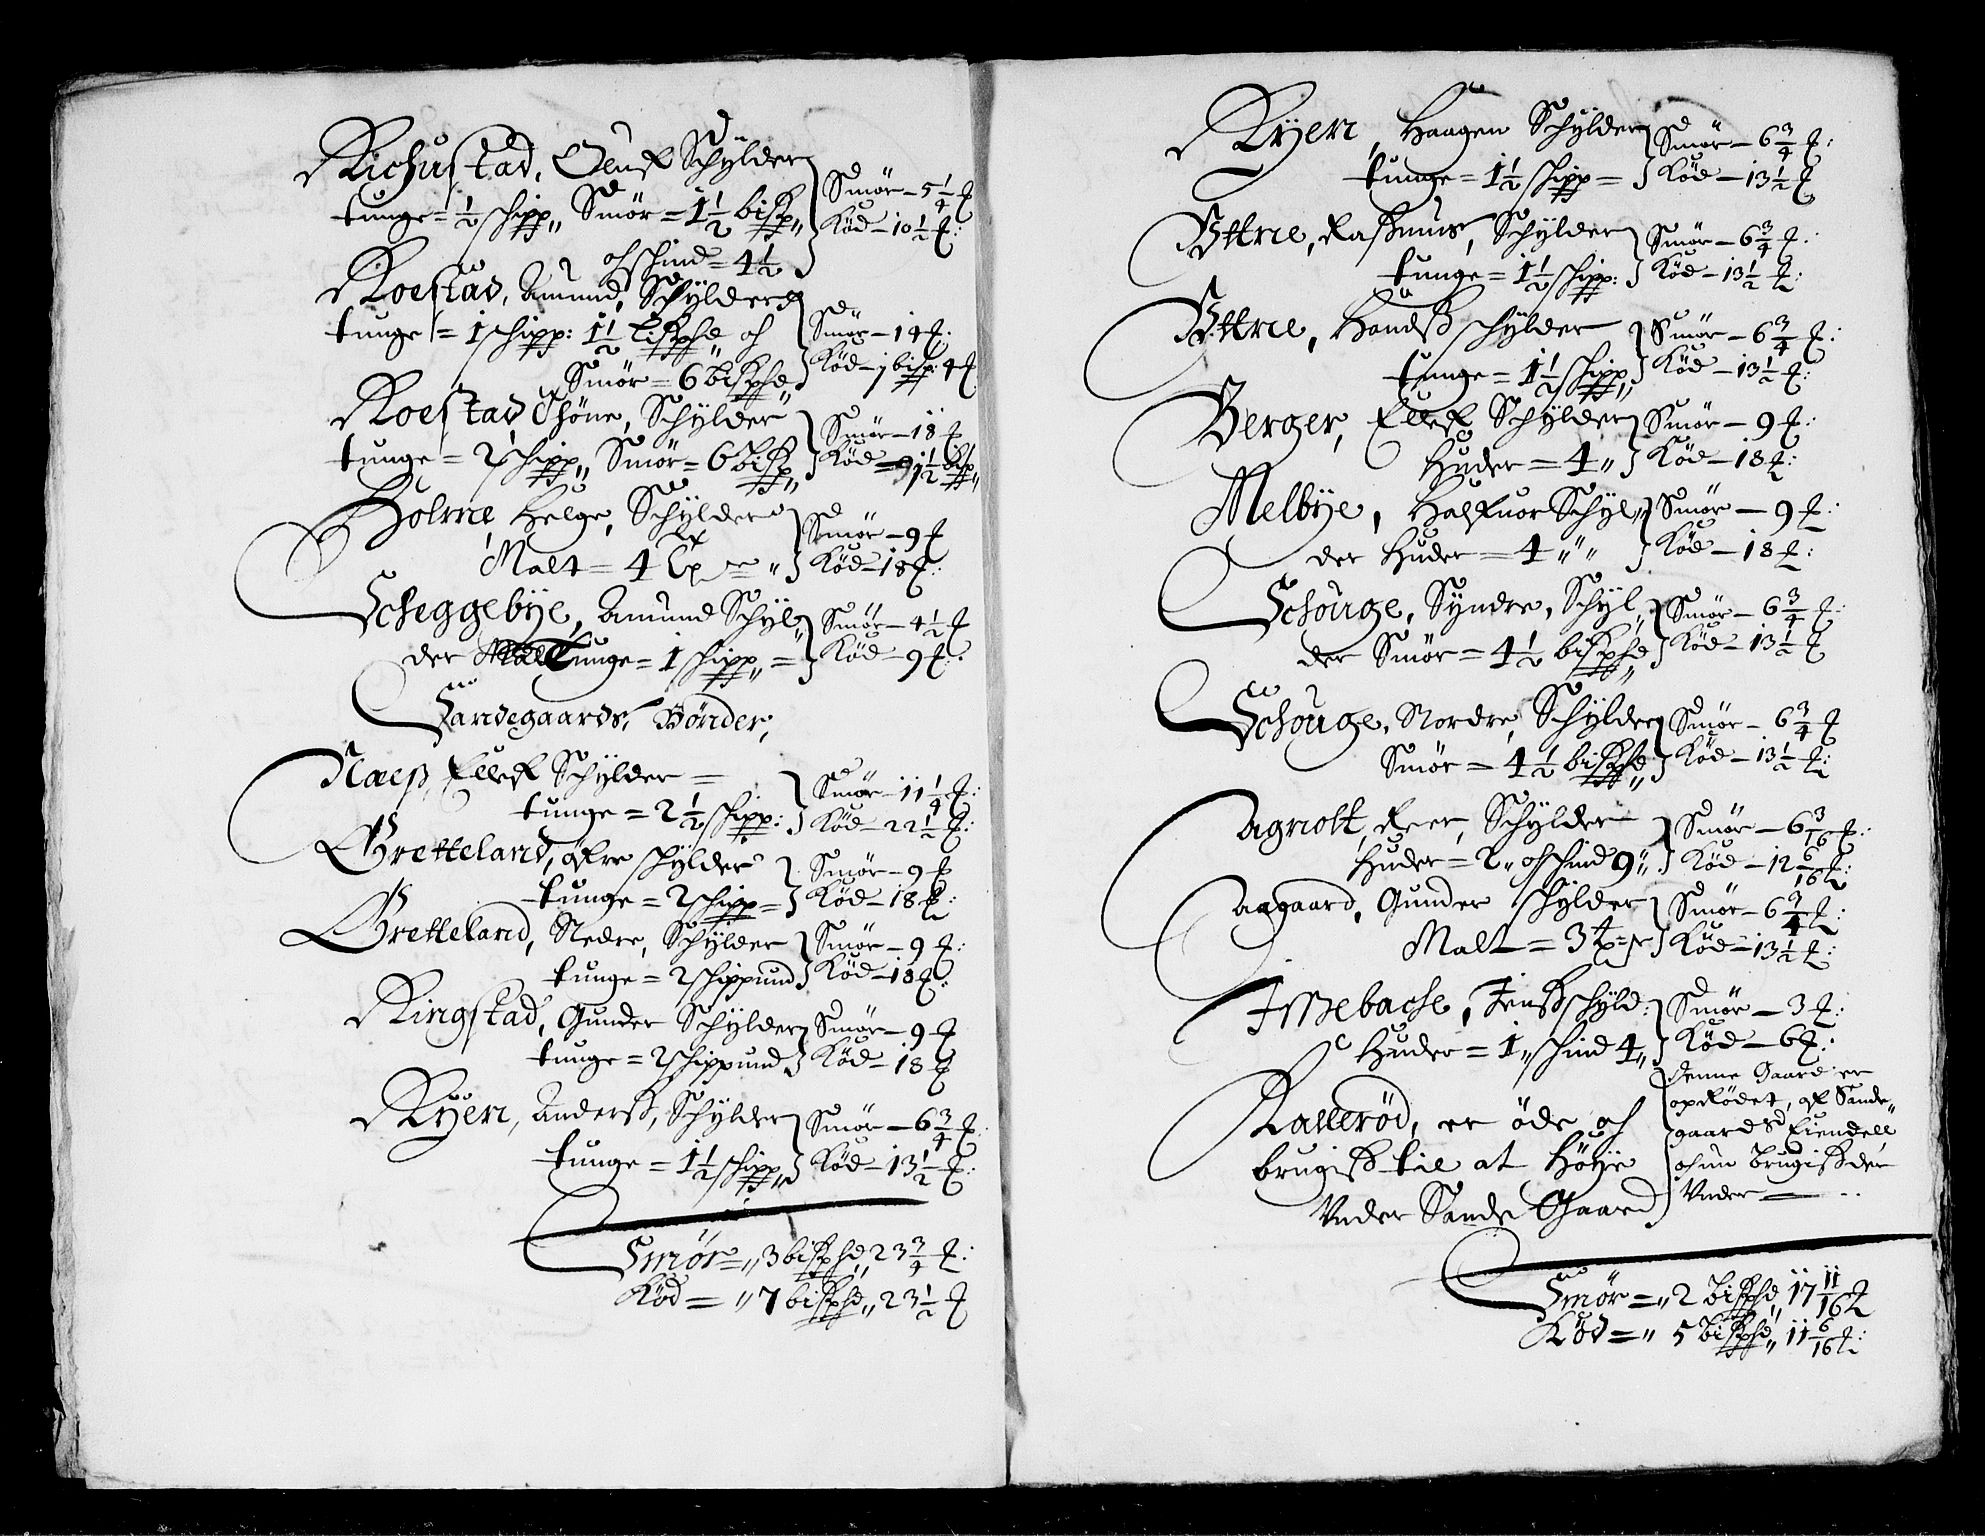 Richustad, Oluf Schylder
tunge = ½ schipp„ Smör = 1½ bisp„
och schind = 4½
Smör – 5¼ ℔
Köd – 10½ ℔:
Roestad, Amund, Schylder
tunge = 1 schipp: 1½ Lispde och
Smör = 6 bispde„
Smör – 14 ℔:
Köd – 1 bisp: 4 ℔
Roestad Thöne, Schylder
tunge = 2 schipp„ Smör = 6 bisp„
Smör – 18 ℔
Köd = 1½ bisp„
Holme, Helge, Schylder
Malt = 4
Smör – 9 ℔
Köd – 18 ℔:
Scheggebye, Amund Schyl„
der tunge = 1 schipp„ =
Smör – 4½ ℔
Köd – 9 ℔:
Sandegaards, Bönder,
Naeß, Ellef Schylder =
tunge = 2½ schipp:
Smör – 11¼ ℔:
Köd – 22½ ℔:
Gretteland, öfre schylder
tunge = 2 schipp =
Smör – 9 ℔
Köd – 18 ℔:
Gretteland, Nedre, Schylder
tunge = 2 schippund
Smör – 9 ℔:
Köd – 18 ℔:
Ringstad, Gunder Schylder
tunge = 2 schippund
Smör – 9 ℔
Köd – 18 ℔
Ryen, Anderß, Schylder
tunge = 1½ schipp„
Smör – 6¾ ℔:
Köd – 13½ ℔:
Smör = „ 3 bispde„ 23¾ ℔:
Köd = „ 7 bispde„ 23½ ℔
Ryen, Haagen Schylder
tunge = 1½ schipp =
Smör – 6¾ ℔:
Köd – 13½ ℔
Yttrie, Raßmus, Schylder
tunge = 1½ schipp:
Smör – 6¾ ℔:
Köd – 13½ ℔:
Yttrie, Handß schylder
tunge = 1½ schipp„
Smör – 6¾ ℔:
Köd – 13½ ℔:
Berger, Ellef Schylder
Huder = 4„
Smör – 9 ℔:
Köd – 18 ℔:
Melbye, Halfuor Schyl„
der Huder = 4 „ „ „
Smör – 9 ℔:
Köd – 18 ℔:
Schouge, Syndre, Schyl„
der Smör = 4½ bispde
Smör – 6¾ ℔:
Köd – 13½ ℔
Schouge, Nordre, Schylder
Smör = 4½ bispde„
Smör – 6¾ ℔
Köd – 13½ ℔:
Agnott, Reer, Schylder
Huder = 2„ och schind 9„
Smör – 6 3/16 ℔:
Köd – 12 6/16 ℔:
Aagaard, Gunder schylder
Malt = 3
Smör – 6¾ ℔:
Köd – 13½ ℔:
Issebache, Jenß schyld:
Huder = 1„ schind 4„
Smör – 3 ℔:
Köd – 6 ℔:
Ralleröd, er öde och
brugiß til at Höße
Vnder Sande Gaard
denne Gaard er
opRödet, af Sande„
gaards Eiendell
och nu brugiß der
Vnder —
Smör = „ 2 bispde„ 17 11/16 ℔
Köd = „ 5 bispde„ 11 6/16 ℔: